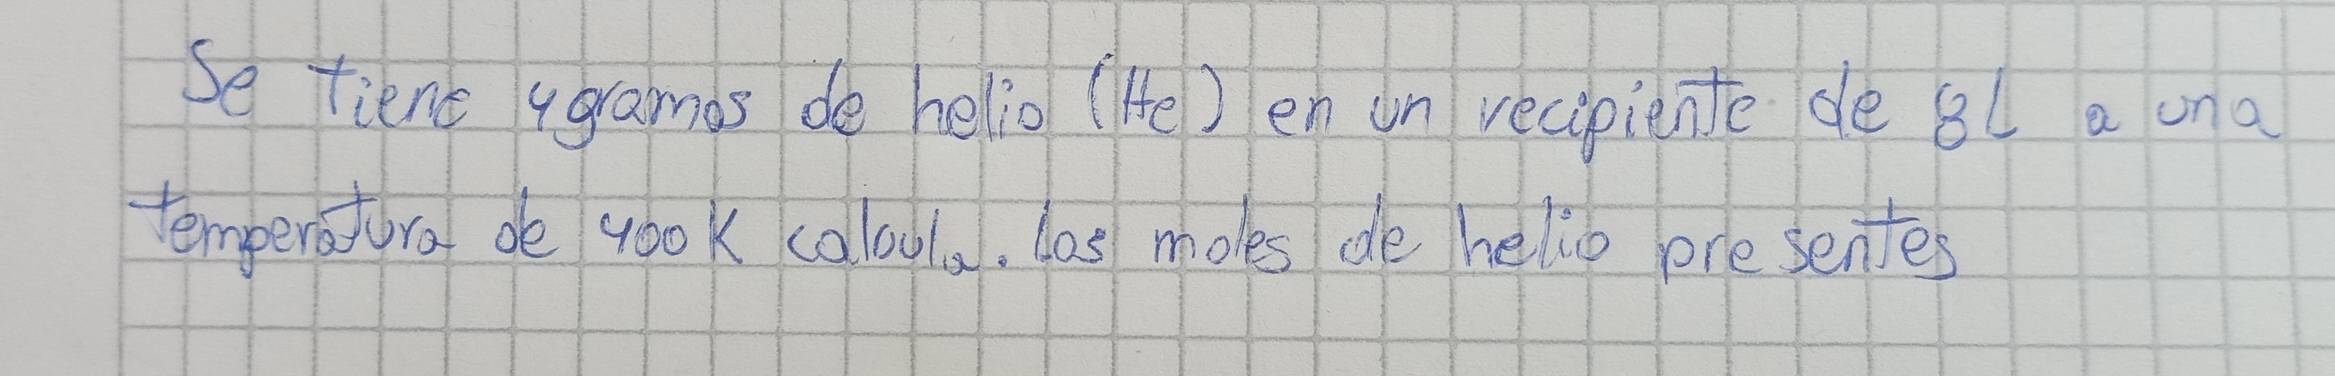 Se tiene 4gramos de helio (He) en un recipiente de 8L a una
temperatura de 400K calcula. las moles de helio presentes